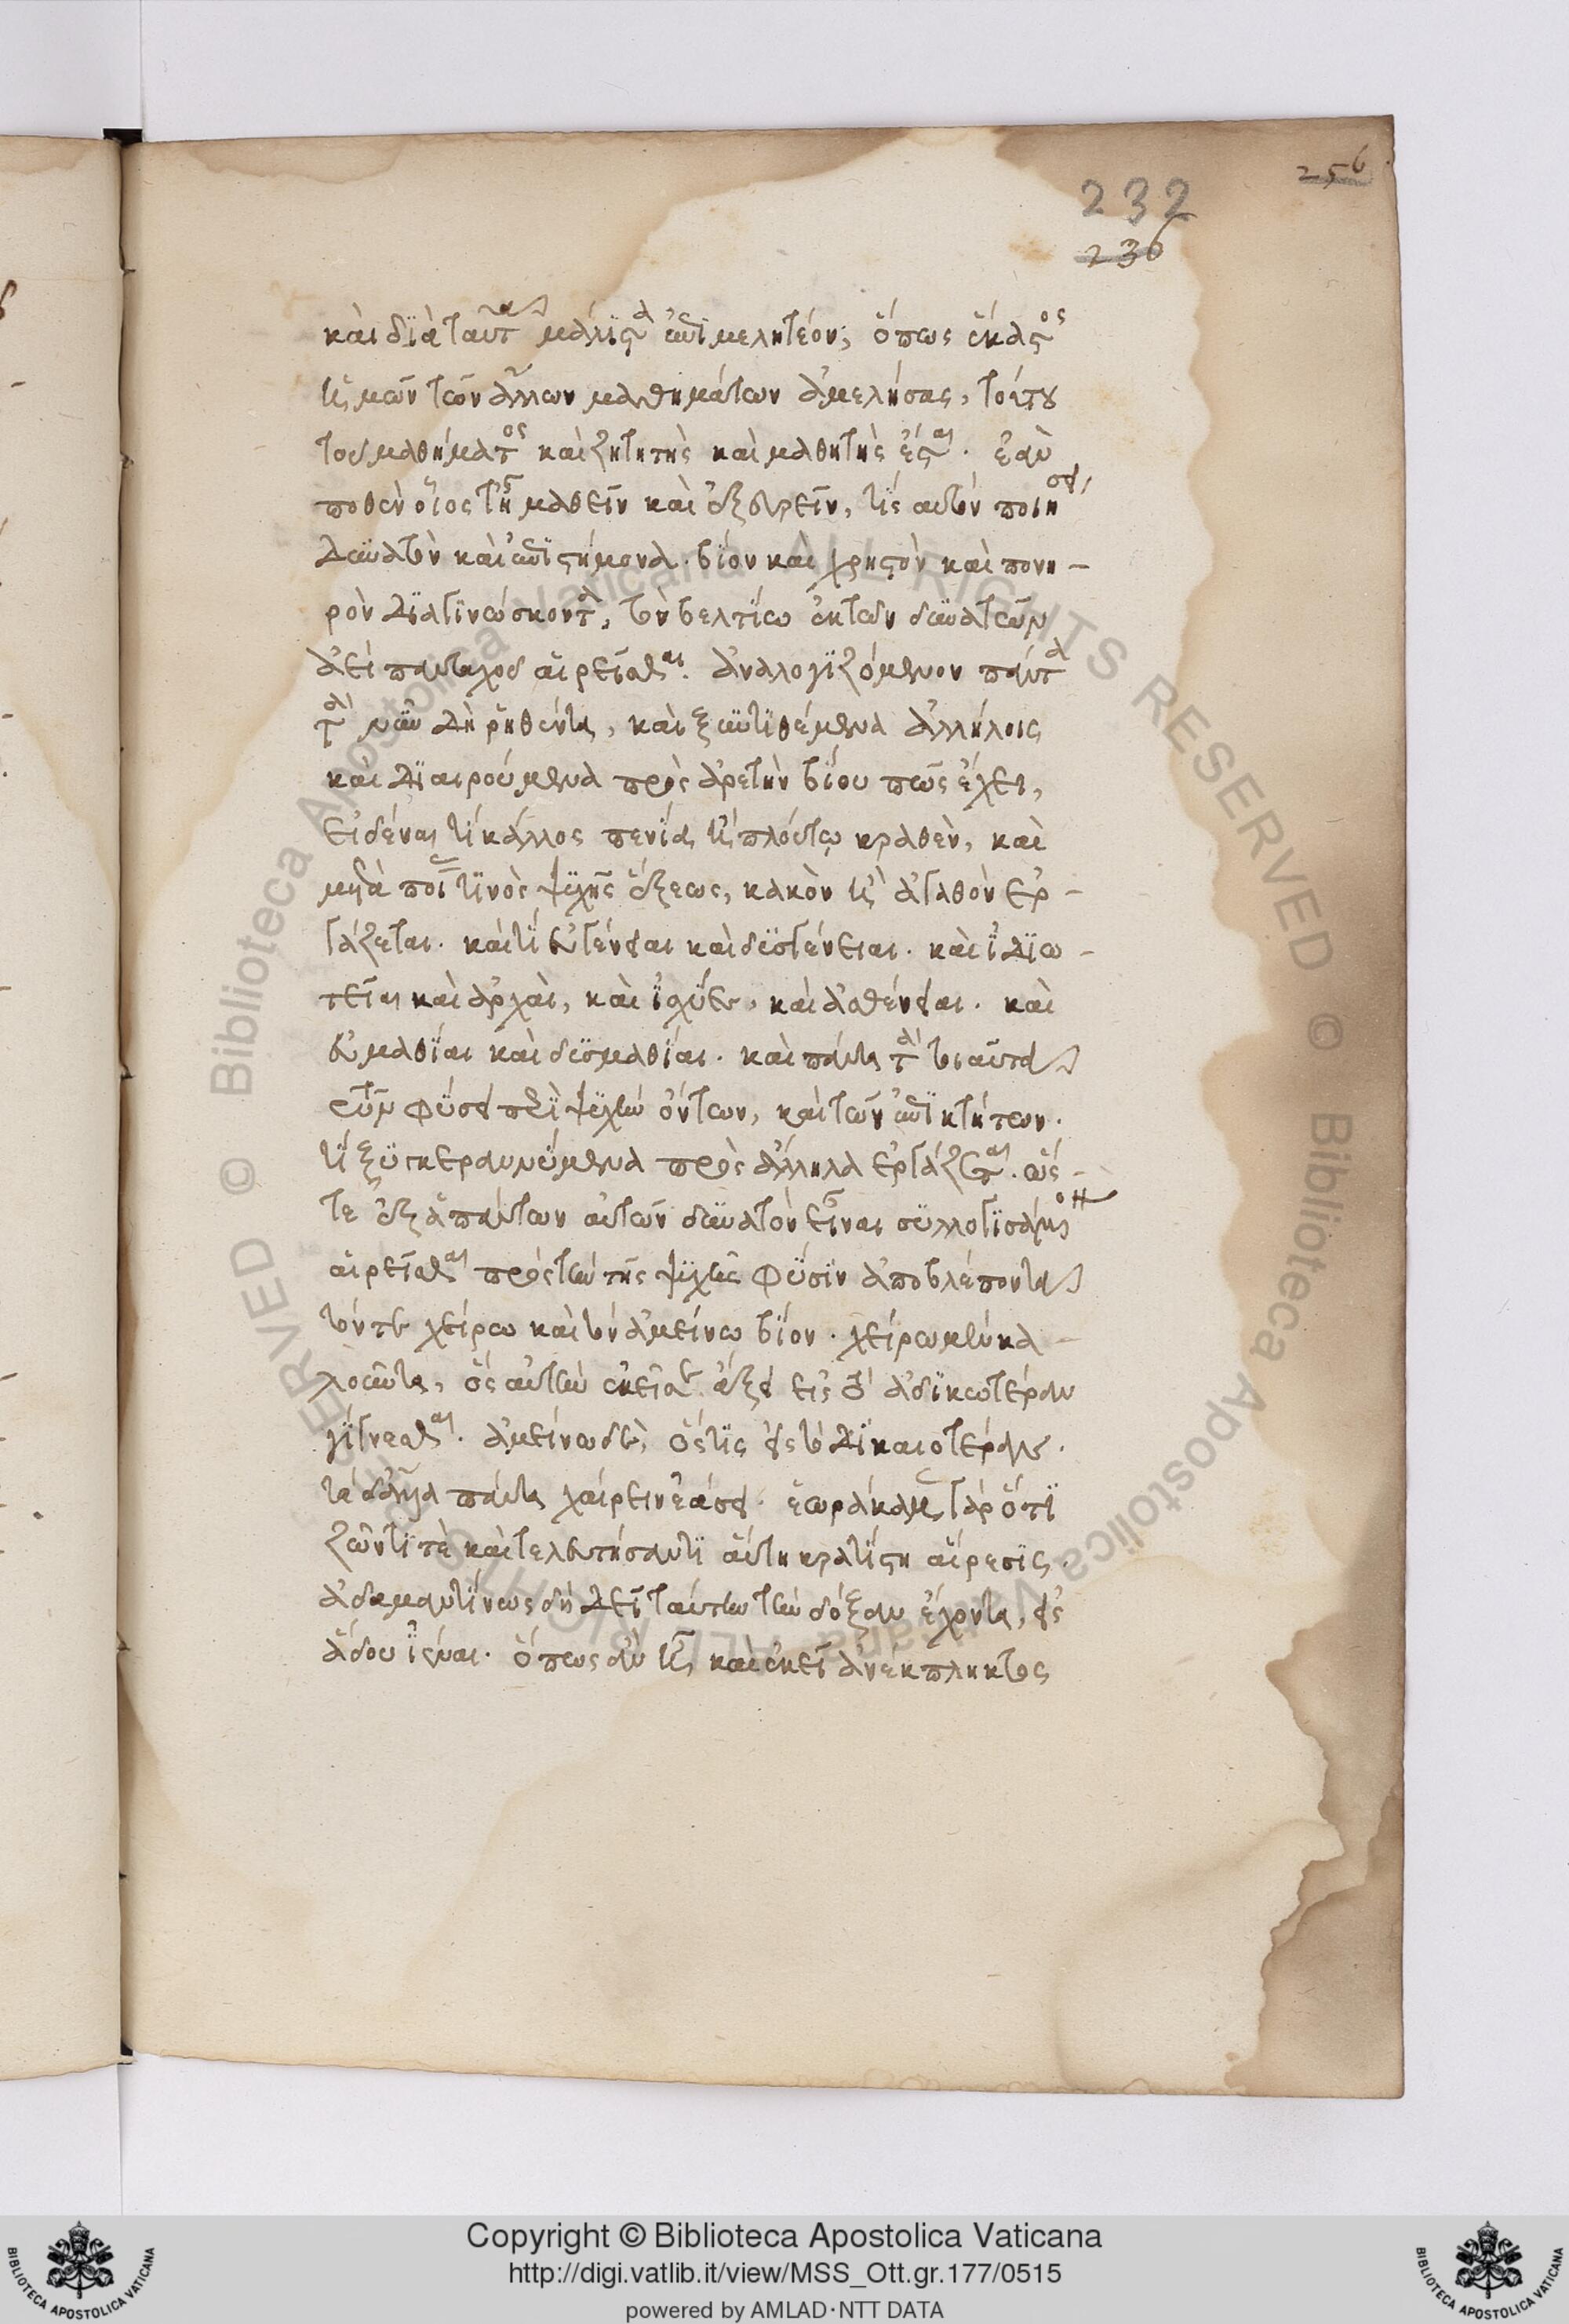 256
232
236
καὶ διὰ ταῦτα μάλιστα ἐπιμελητέον, ὅπως ἕκαστος
ἡμῶν τῶν ἄλλων μαθημάτων ἀμελήσας, τούτου
τοῦ μαθήματος καὶ ζητητὴς καὶ μαθητὴς ἔσται. ἐὰν
ποθεν οἷός τ' ᾖ μαθεῖν καὶ ἐξευρεῖν, τίς αὐτὸν ποιήσει
δυνατὸν καὶ ἐπιστήμονα. βίον καὶ χρηστὸν καὶ πονη-
ρὸν διαγινώσκοντα, τὸν βελτίω ἐκ τῶν δυνατῶν
ἀεὶ πανταχοῦ αἱρεῖσθαι. ἀναλογιζόμενον πάντα
τὰ νῦν δὴ ῥηθέντα, καὶ ξυντιθέμενα ἀλλήλοις
καὶ διαιρούμενα πρὸς ἀρετὴν βίου πῶς ἔχει,
εἰδέναι τί κάλλος πενίᾳ ἢ πλούτῳ κραθὲν, καὶ
μετὰ ποίας τινὸς ψυχῆς ἕξεως, κακὸν ἢ ἀγαθὸν ἐρ-
γάζεται. καὶ τί εὐγένειαι καὶ δυσγένειαι. καὶ ἰδιω-
τεῖαι καὶ ἀρχαὶ, καὶ ἰσχύες, καὶ ἀσθένειαι. καὶ
εὐμαθίαι καὶ δυσμαθίαι. καὶ πάντα τὰ τοιαῦτα
τῶν φύσει περὶ ψυχὴν ὄντων, καὶ τῶν ἐπικτήτων.
τί ξυγκεραννύμενα πρὸς ἄλληλα ἐργάζεται. ὥσ-
τε ἐξ ἁπάντων αὐτῶν δυνατὸν εἶναι συλλογισάμενον
αἱρεῖσθαι πρὸς τὴν τῆς ψυχῆς φύσιν ἀποβλέποντα
τόν τε χείρω καὶ τὸν ἀμείνω βίον. χείρω μὲν κα-
λοῦντα, ὃς αὐτὴν ἐκεῖσε ἄξει εἰς τὸ ἀδικωτέραν
γίγνεσθαι. ἀμείνω δὲ, ὅστις εἰς τὸ δικαιοτέραν.
τὰ δ' ἄλλα πάντα χαίρειν ἐάσει. ἑωράκαμεν γὰρ ὅτι
ζῶντί τε καὶ τελευτήσαντι αὕτη κρατίστη αἵρεσις.
ἀδαμαντίνως δὴ δεῖ ταύτην τὴν δόξαν ἔχοντα, εἰς
ἅδου ἰέναι. ὅπως ἂν ᾖ καὶ ἐκεῖ ἀνέκπληκτος
Copyright © Biblioteca Apostolica Vaticana
http://digi.vatlib.it/view/MSS_Ott.gr.177/0515
powered by AMLAD·NTT DATA